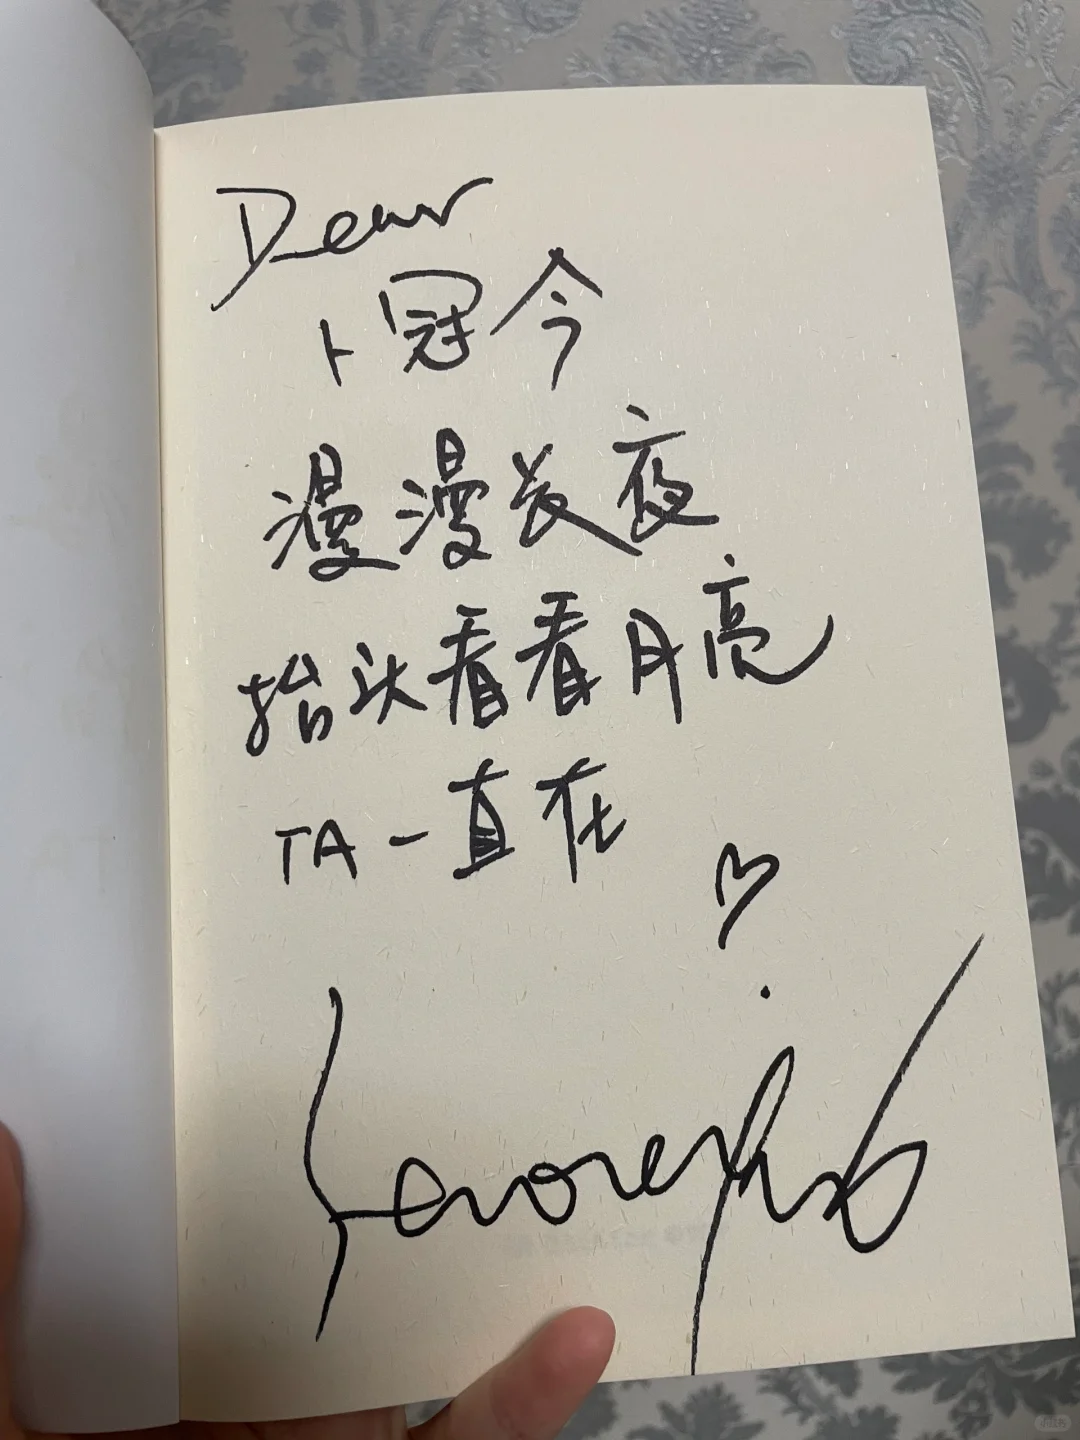 Dear
卜冠今
漫漫长夜
抬头看看月亮
TA一直在